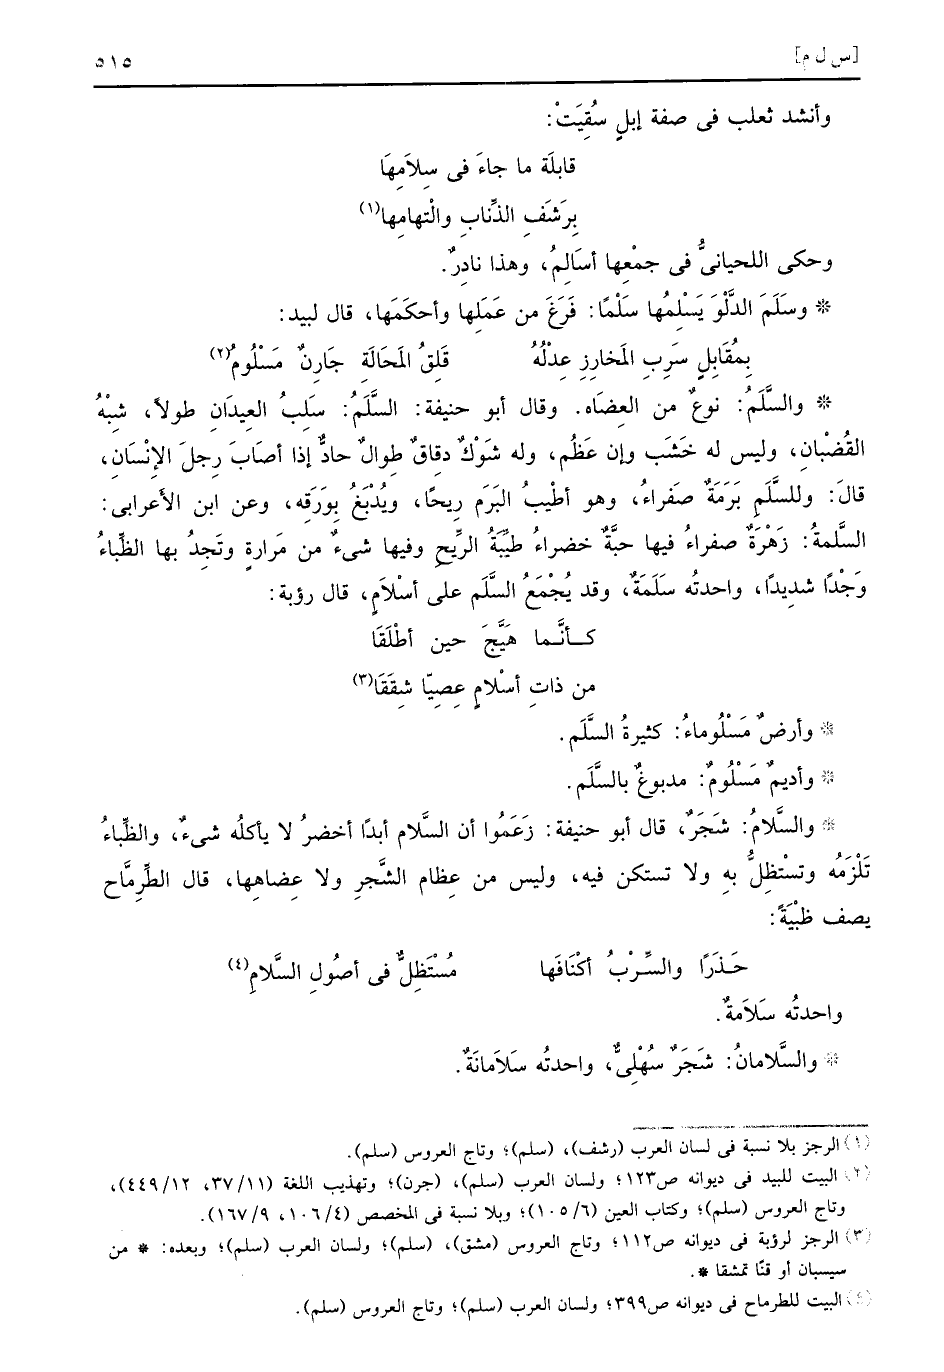 [س ل م] ٥١٥
وأنشد ثعلب فى صفة إبلٍ سُقِيَتْ:
قابلَة ما جاءَ فى سِلاَمِهَا
بِرَشَفِ الذِّنابِ والْتهامِها(١)
وحكى اللحيانىُّ فى جمْعِها أسَالِمُ، وهذا نادِرٌ.
* وسَلَمَ الدَّلْوَ يَسْلِمُها سَلْمًا: فَرَغَ من عَمَلِها وأحكَمَها، قال لبيد:
بِمُقَابِلٍ سَرِبِ المَخارِزِ عِدْلُهُ قَلِقُ المَحَالَةِ جَارِنٌ مَسْلُومُ(٢)
* والسَّلَمُ: نوعٌ من العِضَاه. وقال أبو حنيفة: السَّلَمُ: سَلِبُ العيدَانِ طولاً، شبْهُ
القُضْبانِ، وليس له خَشَب وإن عَظُم، وله شَوْكٌ دقاقٌ طوالٌ حادٌّ إذا أصَابَ رِجلَ الإنْسَانِ،
قالَ: وللسَّلَمِ بَرَمَةٌ صَفراءُ، وهو أطْيبُ البَرَم رِيحًا، ويُدْبَغُ بوَرَقِه، وعن ابن الأعرابى:
السَّلمةُ: زَهْرَةٌ صفراءُ فيها حبَّةٌ خضراءُ طيِّبَةُ الرِّيح وفيها شىءٌ من مَرارةٍ وتَجِدُ بها الظِّباءُ
وَجْدًا شديدًا، واحدتُه سَلَمَةٌ، وقد يُجْمَعُ السَّلَم على أسْلاَمٍ، قال رؤبة:
كـأنَّـما هَيَّجَ حين أطْلَقَا
من ذاتِ أسْلامٍ عِصِيّا شِقَقَا(٣)
* وأرضٌ مَسْلُوماءُ: كثيرةُ السَّلَم.
* وأديمٌ مَسْلُومٌ: مدبوغٌ بالسَّلَم.
* والسَّلامُ: شَجَرٌ، قال أبو حنيفة: زَعَمُوا أن السَّلام أبدًا أخضرُ لا يأكلُه شىءٌ، والظِّباءُ
تَلْزَمُه وتسْتَظِلُّ بهِ ولا تستكن فيه، وليس من عِظام الشَّجرِ ولا عِضاهِها، قال الطِّرِمَّاح
يصف ظَبْيَةً:
حَـذَرًا والسِّرْبُ أكْنَافَها مُسْتَظِلٌّ فى أصُولِ السَّلامِ(٤)
واحدتُه سَلاَمةٌ.
* والسَّلامانُ: شَجَرٌ سُهْلِىٌّ، واحدتُه سَلاَمَانَةٌ.
(١) الرجز بلا نسبة فى لسان العرب (رشف)، (سلم)؛ وتاج العروس (سلم).
(٢) البيت للبيد فى ديوانه ص١٢٣؛ ولسان العرب (سلم)، (جرن)؛ وتهذيب اللغة (١١/٣٧، ١٢/٤٤٩)،
وتاج العروس (سلم)؛ وكتاب العين (٦/١٠٥)؛ وبلا نسبة فى المخصص (٤/١٠٦، ٩/١٦٧).
(٣) الرجز لرؤبة فى ديوانه ص١١٢؛ وتاج العروس (مشق)، (سلم)؛ ولسان العرب (سلم)؛ وبعده: * من
سيسبان أو قنًا تمشقا *.
(٤) البيت للطرماح فى ديوانه ص٣٩٩؛ ولسان العرب (سلم)؛ وتاج العروس (سلم).